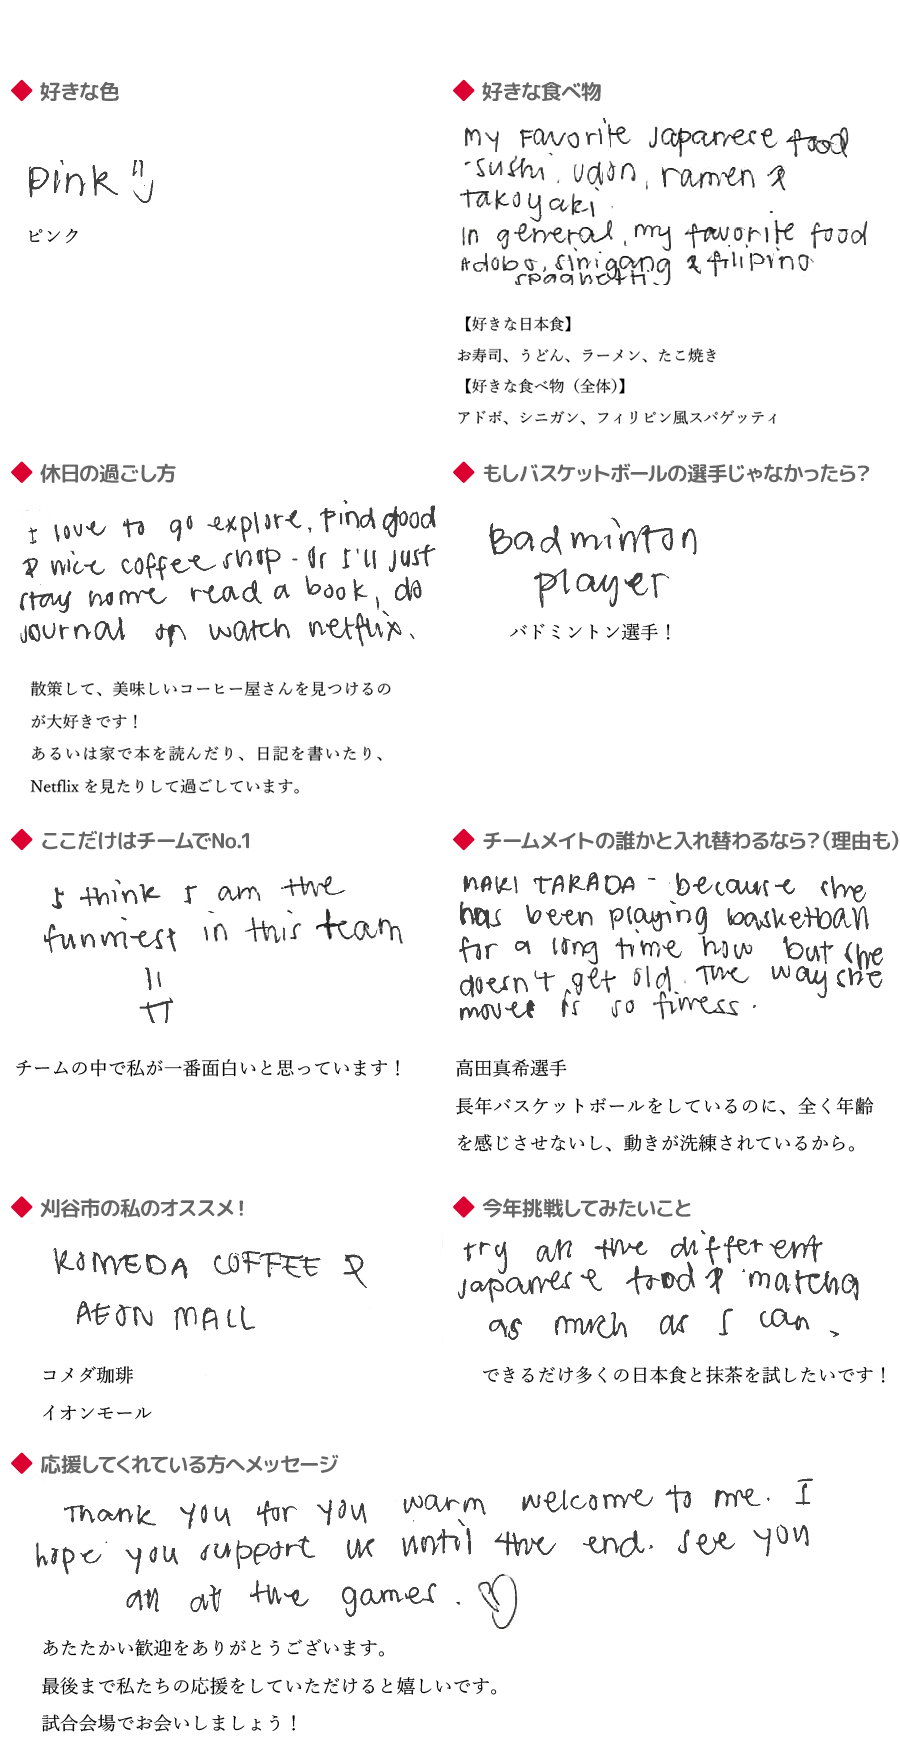 好きな色
pink
ピンク
好きな食べ物
my favorite Japanese food
- sushi, udon, ramen &
takoyaki.
In general, my favorite food
Adobo, sinigang & filipino
spaghetti.
【好きな日本食】
お寿司、うどん、ラーメン、たこ焼き
【好きな食べ物（全体）】
アドボ、シニガン、フィリピン風スパゲッティ
休日の過ごし方
I love to go explore, find good
& nice coffee shop - Or I'll just
stay home read a book, do
journal or watch netflix.
散策して、美味しいコーヒー屋さんを見つけるの
が大好きです！
あるいは家で本を読んだり、日記を書いたり、
Netflix を見たりして過ごしています。
もしバスケットボールの選手じゃなかったら？
Badminton
player
バドミントン選手！
ここだけはチームでNo.1
I think I am the
funniest in this team
チームの中で私が一番面白いと思っています！
チームメイトの誰かと入れ替わるなら？（理由も）
MAKI TAKADA - because she
has been playing basketball
for a long time now but she
doesn't get old. The way she
moves is so finess.
高田真希選手
長年バスケットボールをしているのに、全く年齢
を感じさせないし、動きが洗練されているから。
刈谷市の私のオススメ！
KOMEDA COFFEE &
AEON MALL
コメダ珈琲
イオンモール
今年挑戦してみたいこと
try all the different
Japanese food & matcha
as much as I can.
できるだけ多くの日本食と抹茶を試したいです！
応援してくれている方へメッセージ
Thank you for you warm welcome to me. I
hope you support us until the end. See you
all at the games.
あたたかい歓迎をありがとうございます。
最後まで私たちの応援をしていただけると嬉しいです。
試合会場でお会いしましょう！